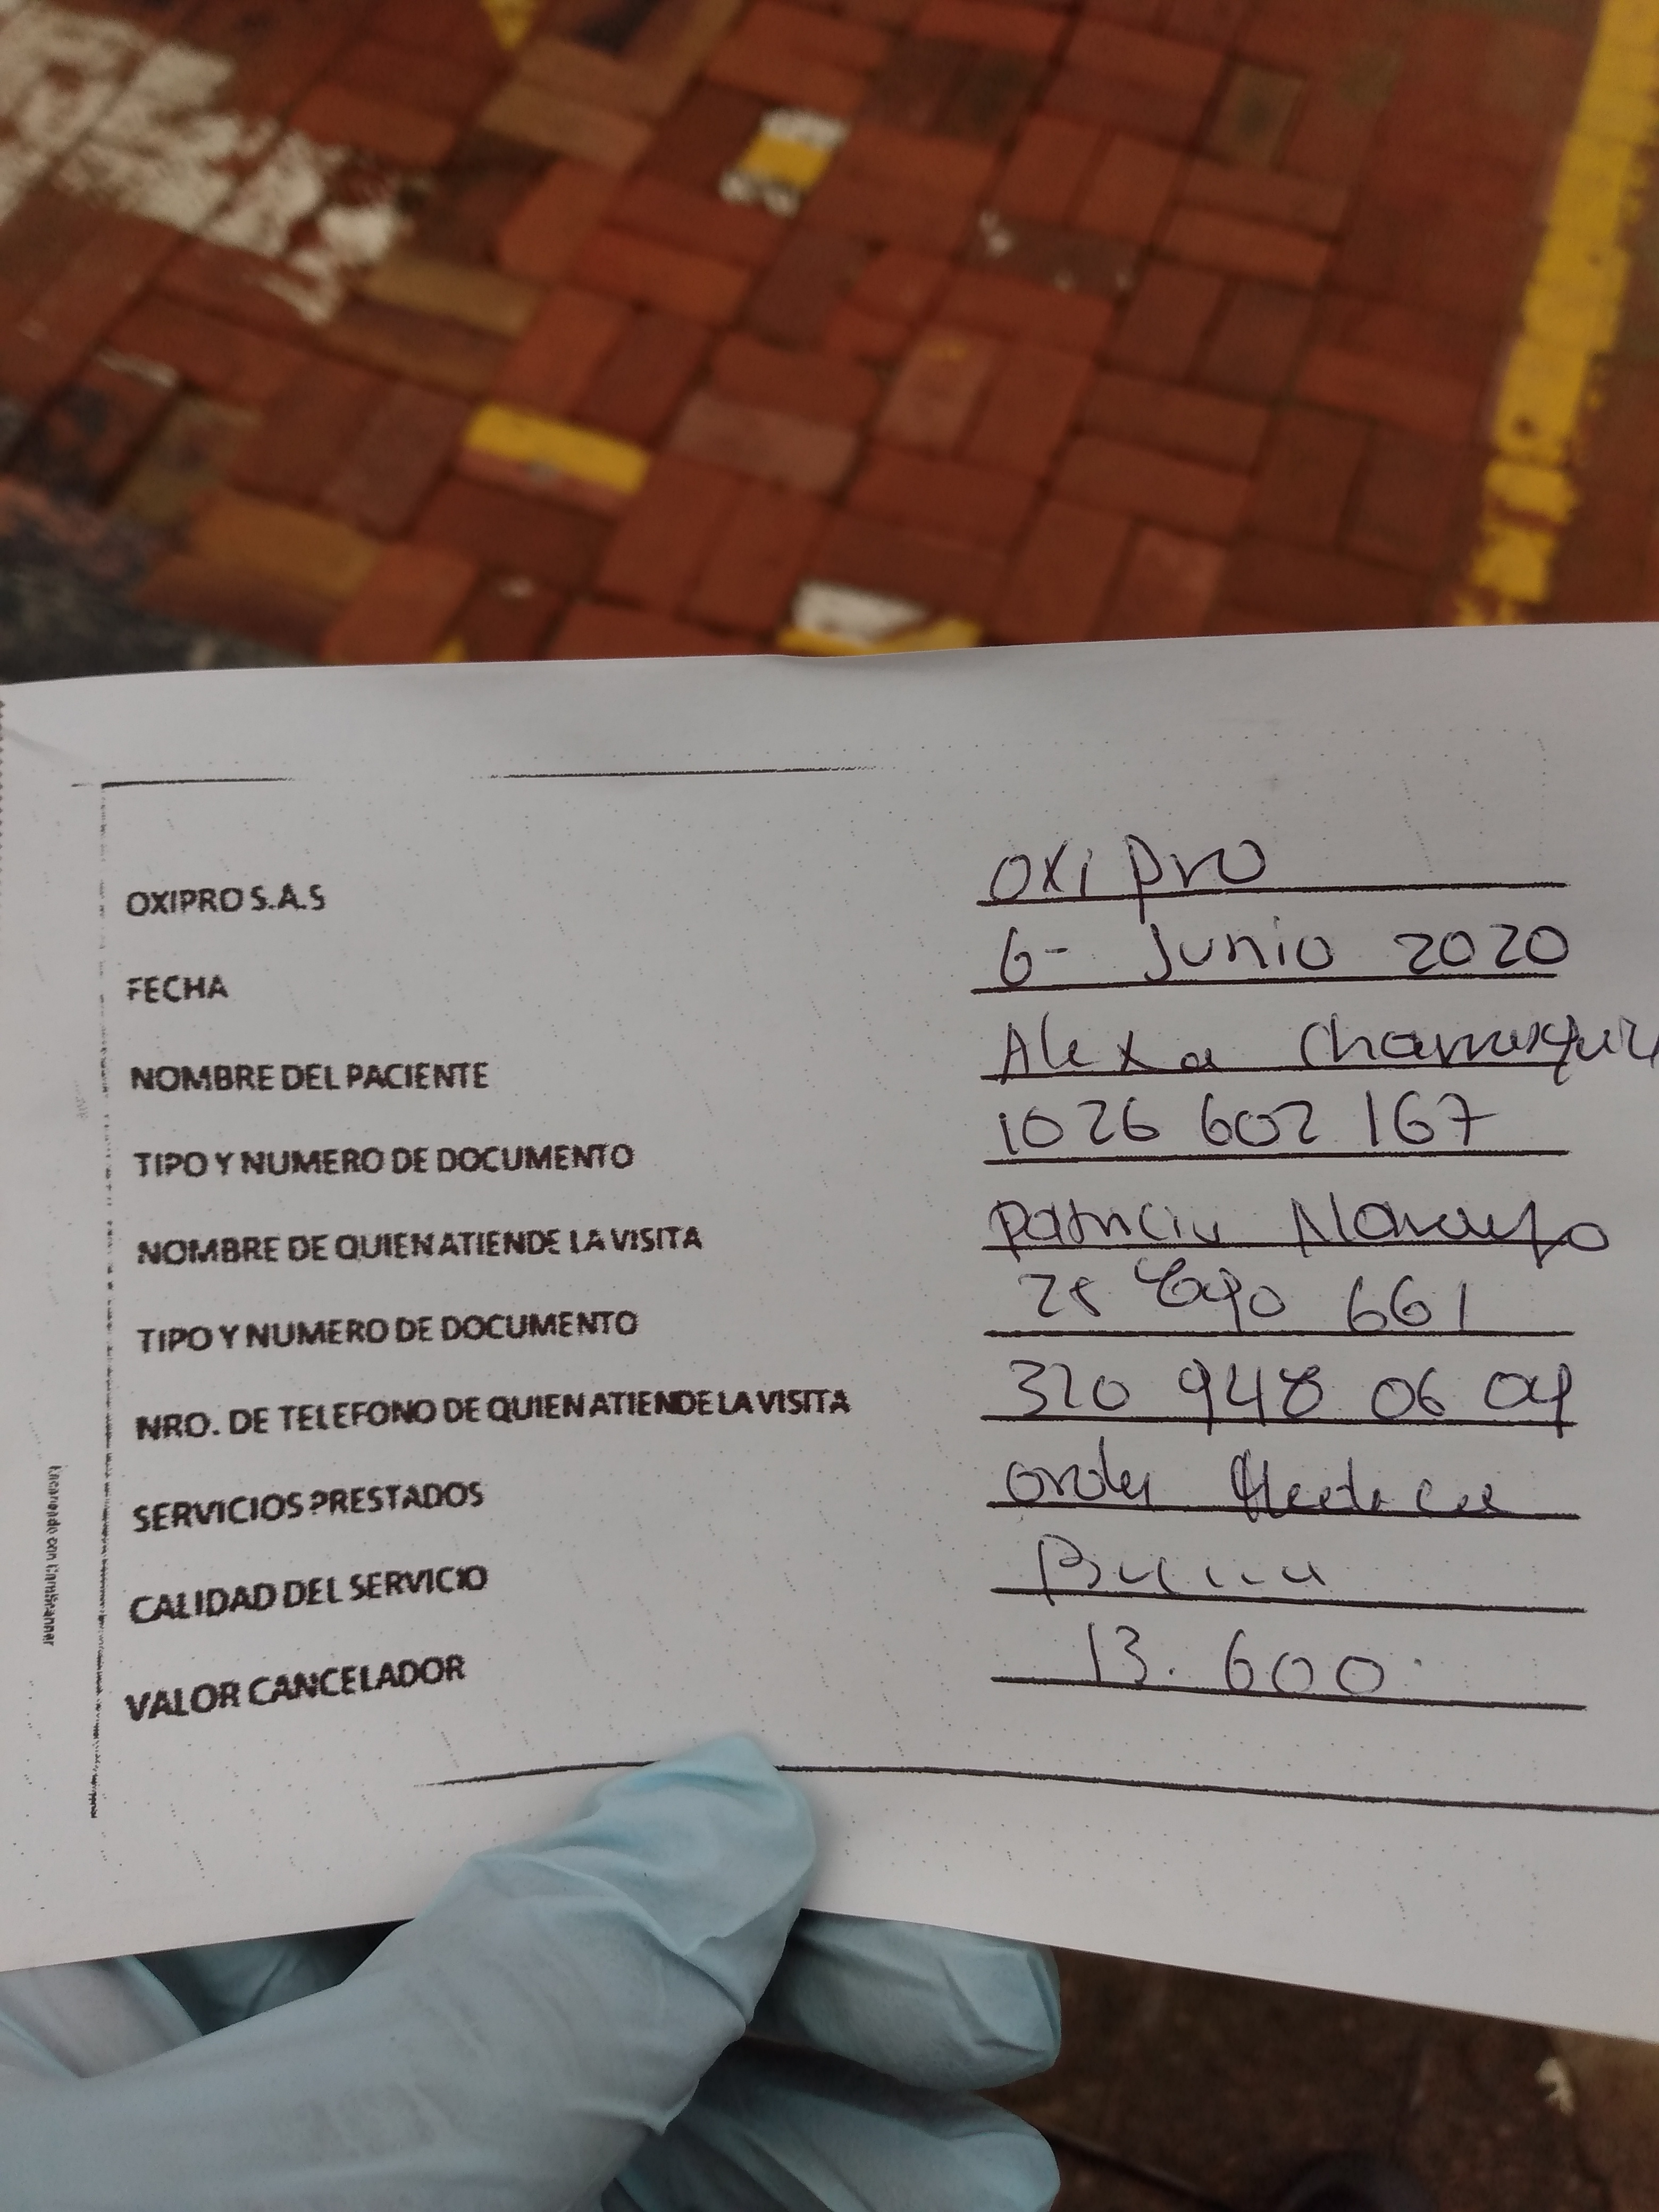 OXIPRO S.A.S oxi pro
FECHA 6- Junio 2020
NOMBRE DEL PACIENTE Alexa
TIPO Y NUMERO DE DOCUMENTO 1026 602 167
NOMBRE DE QUIEN ATIENDE LA VISITA Patricia Naranjo
TIPO Y NUMERO DE DOCUMENTO 661
NRO. DE TELEFONO DE QUIEN ATIENDE LA VISITA 320 948 06 04
SERVICIOS PRESTADOS orden Medica
CALIDAD DEL SERVICIO Buena
VALOR CANCELADOR 13.600
Escaneado con CamScanner